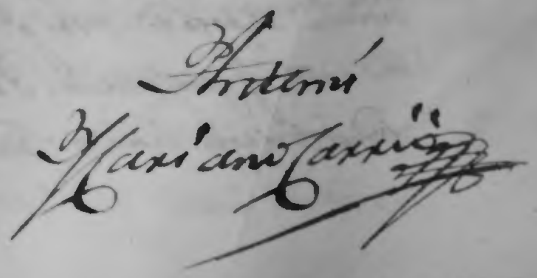 Ante mi
Mariano Carrión